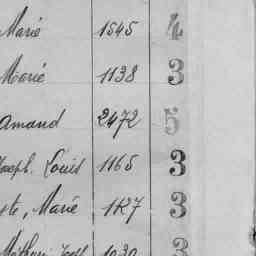 Marie 1545 4
Marie 1138 3
amand 2472 5
Joseph Louis 1165 3
ste, Marie 1127 3
1030 3